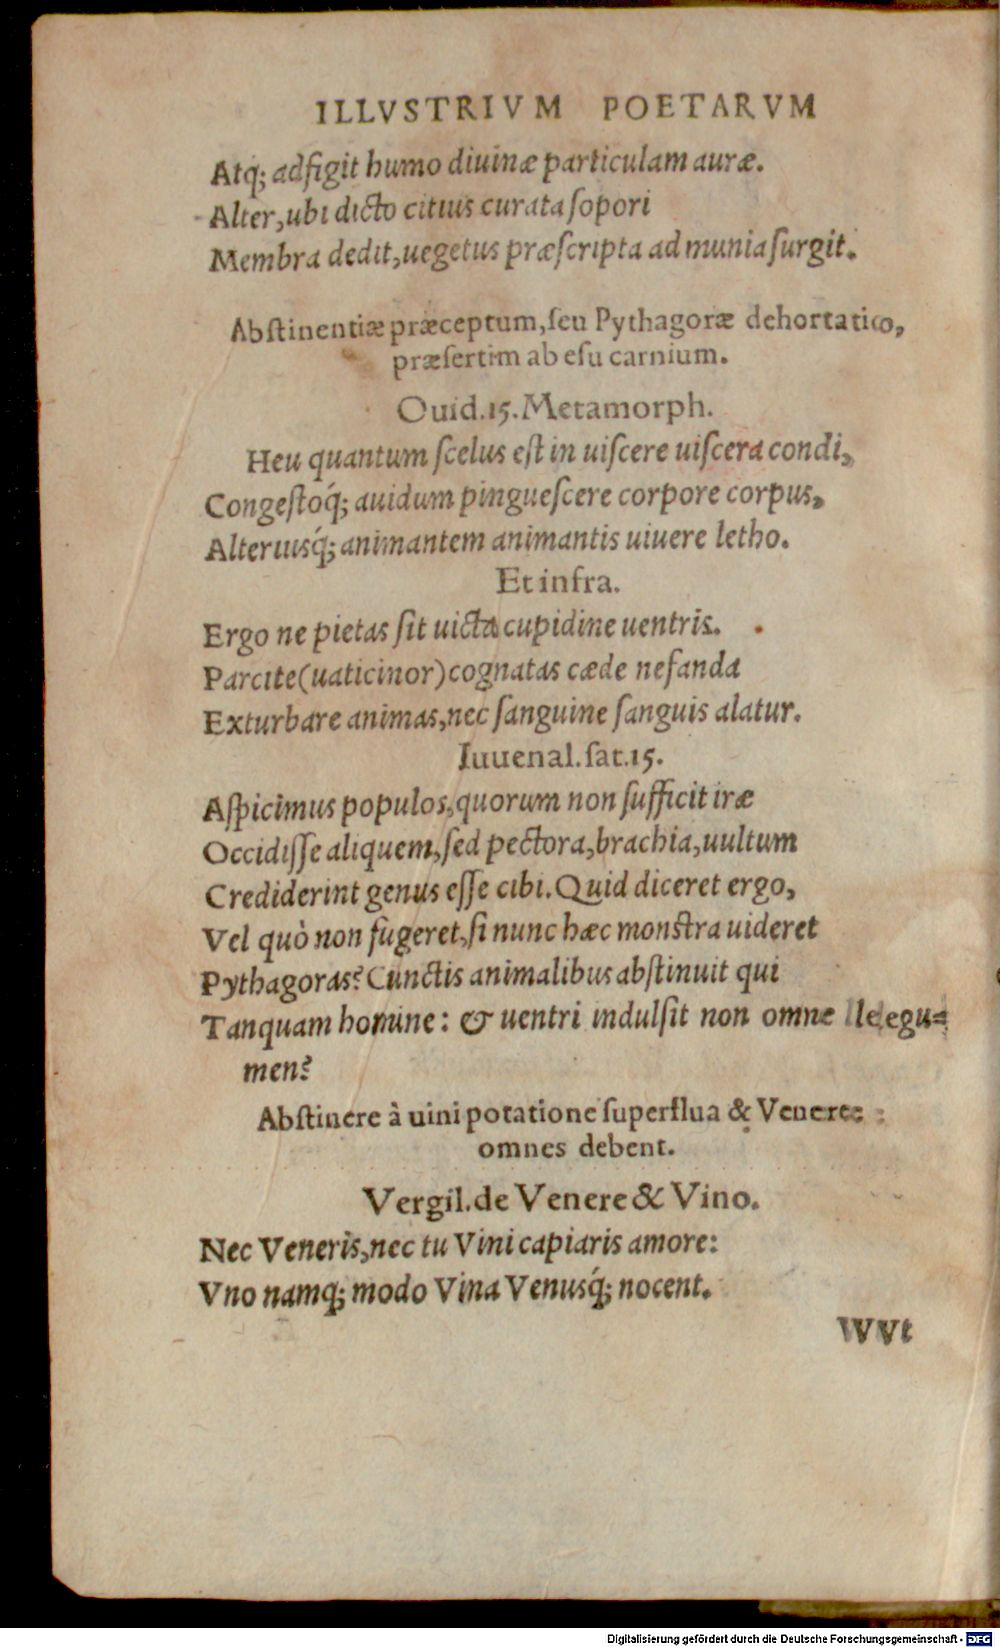 ILLVSTRIVM POETARVM
Atq; adfigit humo diuinæ particulam auræ.
Alter, ubi dicto citius curata sopori
Membra dedit, uegetus præscripta ad munia surgit.
Abstinentiæ præceptum, seu Pythagoræ dehortatio,
præsertim ab esu carnium.
Ouid. 15. Metamorph.
Heu quantum scelus est in uiscere uiscera condi,
Congestoq́; auidum pinguescere corpore corpus,
Alteriusq́; animantem animantis uiuere letho.
Et infra.
Ergo ne pietas sit uicta cupidine uentris.
Parcite (uaticinor) cognatas cæde nefanda
Exturbare animas, nec sanguine sanguis alatur.
Iuuenal. sat. 15.
Aspicimus populos, quorum non sufficit iræ
Occidisse aliquem, sed pectora, brachia, uultum
Crediderint genus esse cibi. Quid diceret ergo,
Vel quò non fugeret, si nunc hæc monstra uideret
Pythagoras? Cunctis animalibus abstinuit qui
Tanquam homine: & uentri indulsit non omne legu=
men?
Abstinere à uini potatione superflua & Venere
omnes debent.
Vergil. de Venere & Vino.
Nec Veneris, nec tu Vini capiaris amore:
Vno namq; modo Vina Venusq́; nocent.
Vvt
Digitalisierung gefördert durch die Deutsche Forschungsgemeinschaft - DFG